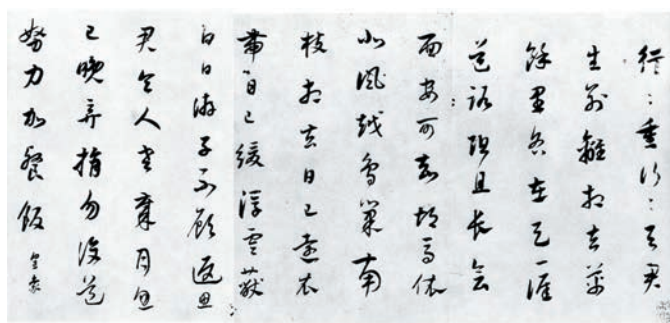 行〻重行〻与君
生別離相去萬
餘里各在天一涯
道路阻且長会
面安可知胡馬依
北風越鳥巢南
枝相去日已遠衣
帶日已緩浮雲蔽
白日游子不顧返思
君令人老歲月忽
已晚弃捐勿復道
努力加餐飯